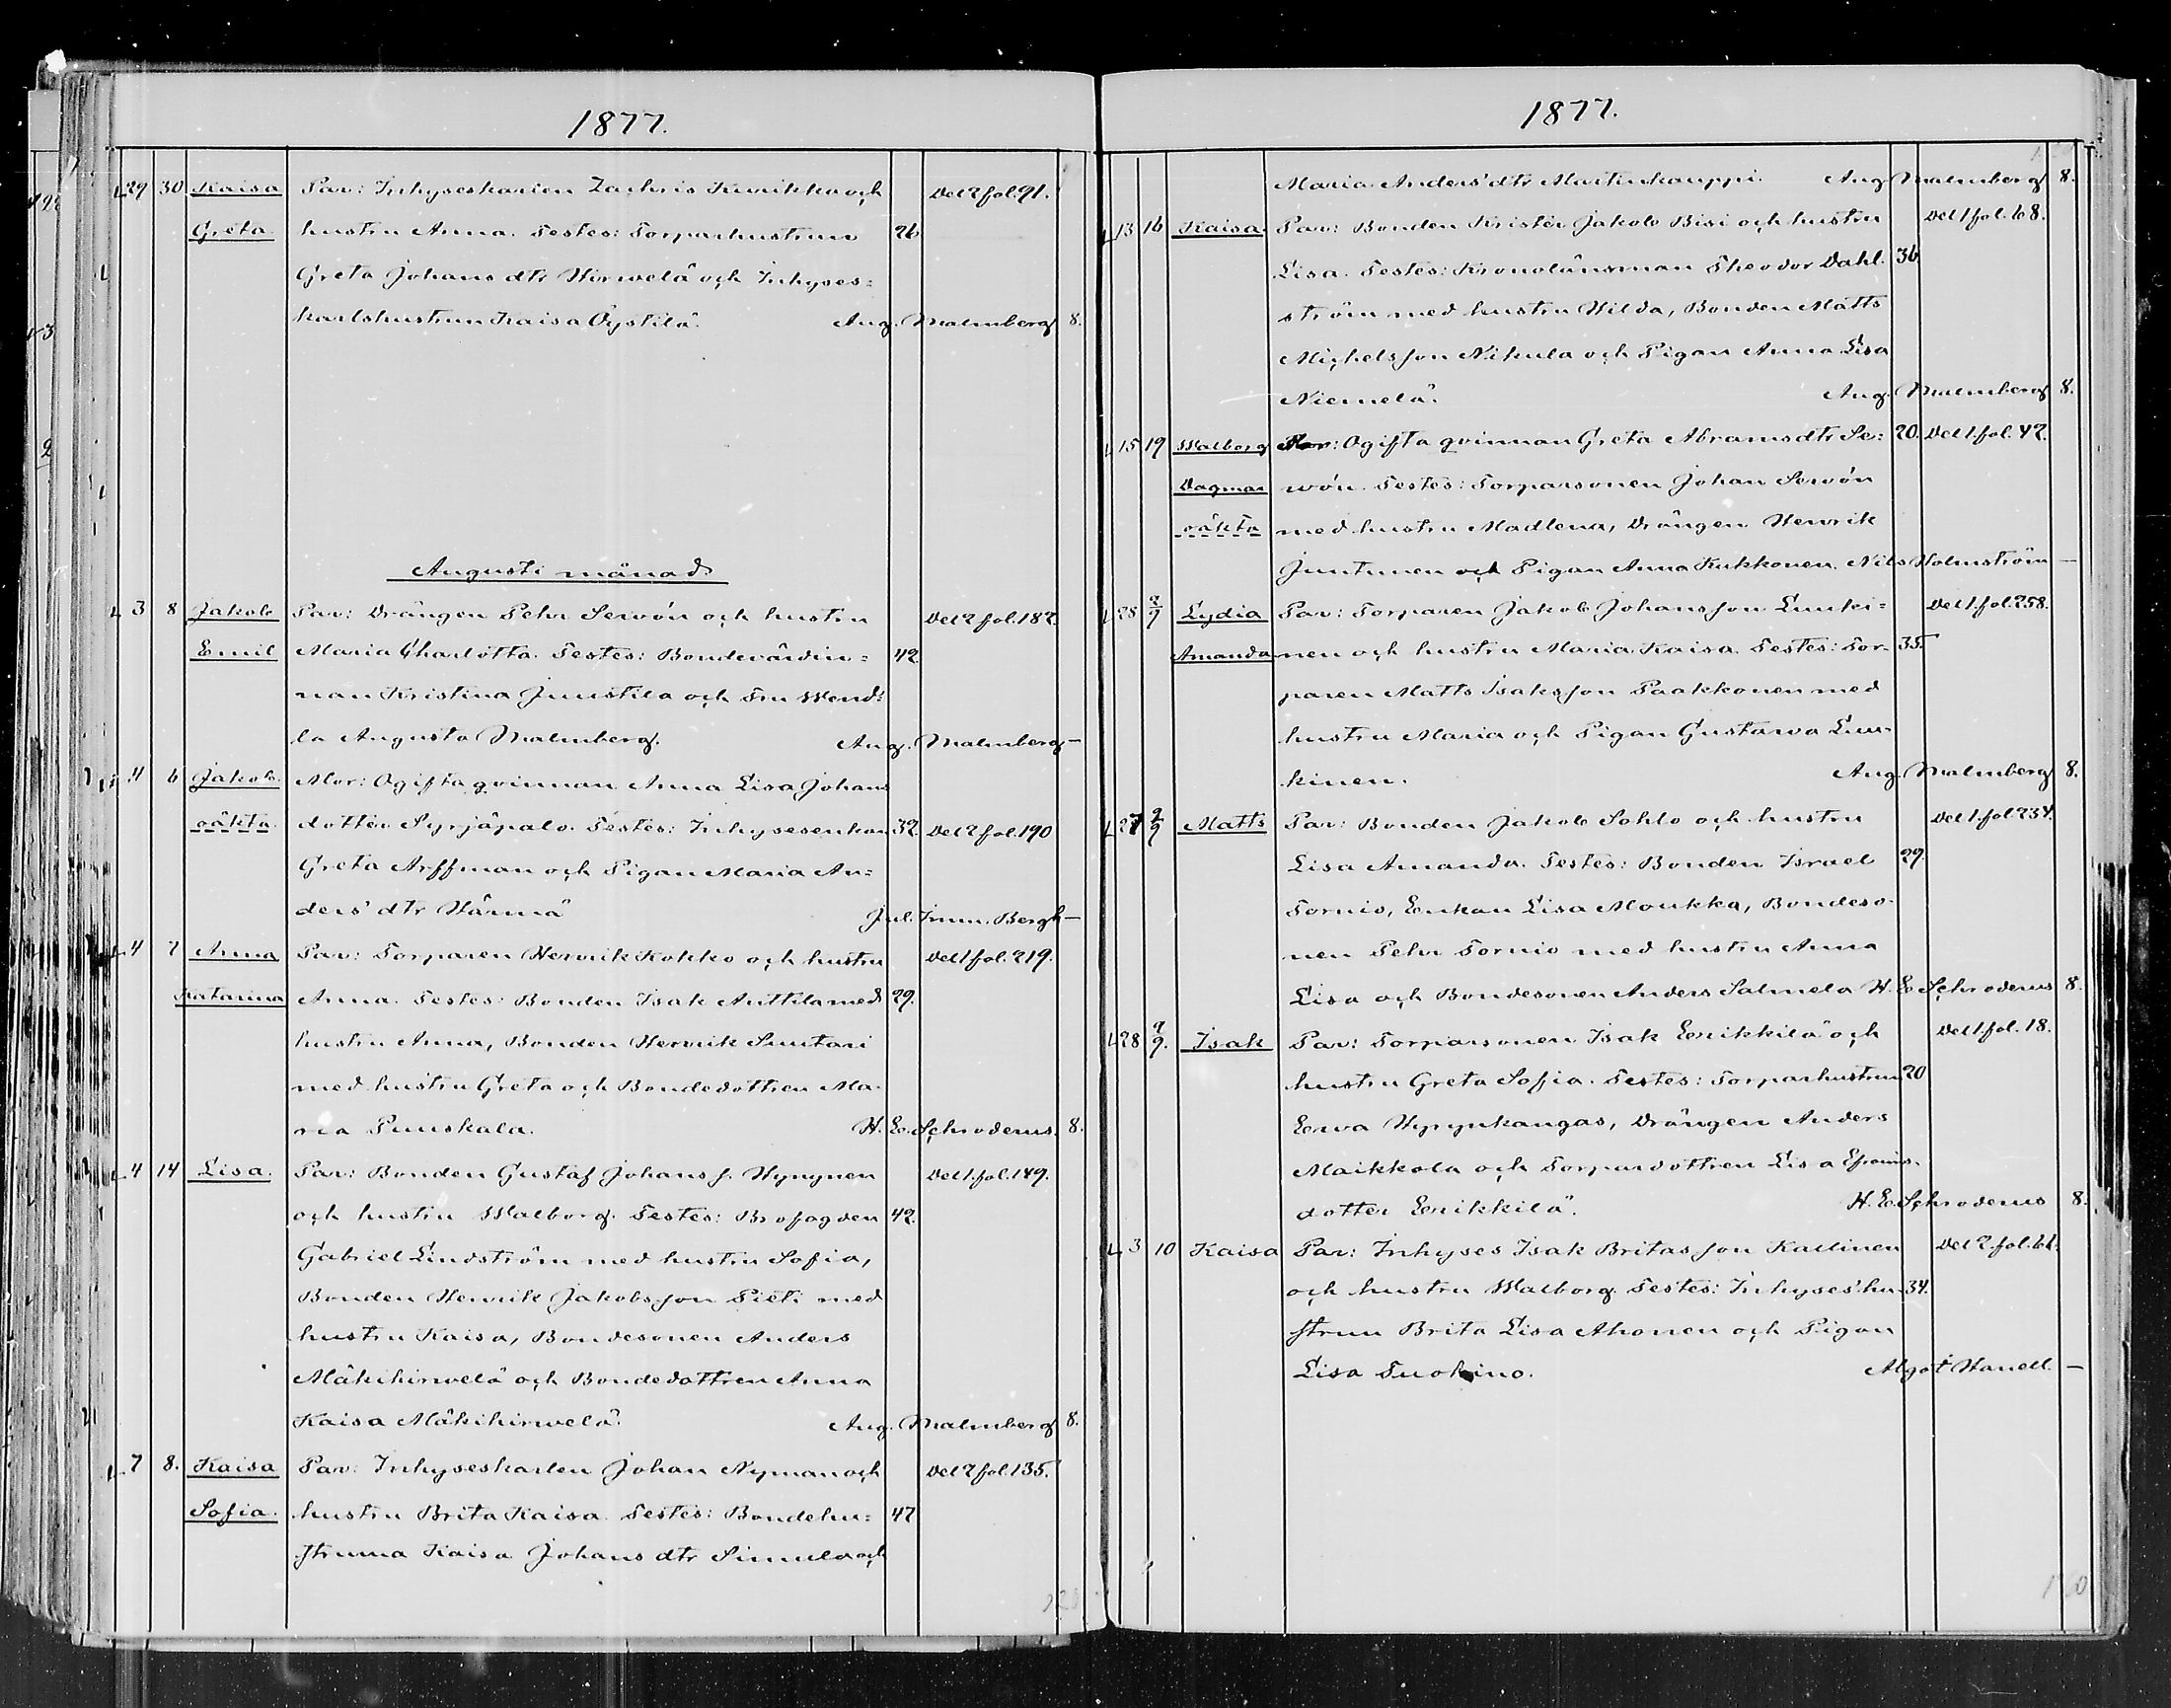 1877.
29 30 Kaisa Par: Inhyseskarlen Zachris Kurikka och Del 2 fol. 91.
Greta. hustru Anna. Testes: Torparhustrun 26
Greta Johansdtr Hirwelä och Inhyses=
karlshustrun Kaisa Öystilä. Aug. Malmberg 8.
Augusti månad
3 8 Jakob Par: Drängen Pehr Serwön och hustru Del 2 fol. 182.
Emil Maria Charlotta. Testes: Bondevärdin= 42
nan Kristina Juustila och Fru Wend=
la Augusta Malmberg. Aug. Malmberg —
4 6 Jakob. Mor: Ogifta qvinnan Anna Lisa Johans
oäkta. dotter Syrjäpalo. Testes: Inhysesenkan 32. Del 2 fol. 190
Greta Arffman och Pigan Maria An=
ders'dtr Härmä Jul. Imm. Bergh —
4 7 Anna Par: Torparen Henrik Kokko och hustru Del 1 fol. 219.
Katarina Anna. Testes: Bonden Isak Anttila med 29.
hustru Anna, Bonden Henrik Suutari
med hustru Greta och Bondedottren Ma-
ria Puuskala. H. E. Schroderus. 8.
4 14 Lisa. Par: Bonden Gustaf Johanss. Hyrynen Del 1. fol. 149.
och hustru Walborg. Testes: Brofogden 42.
Gabriel Lindström med hustru Sofia,
Bonden Henrik Jakobsson Pieti med
hustru Kaisa, Bondesonen Anders
Mäkihirwelä och Bondedottren Anna
Kaisa Mäkihirwelä. Aug. Malmberg 8.
7 8. Kaisa Par: Inhyseskarlen Johan Nyman och Del 2 fol. 135.
Sofia. hustru Brita Kaisa. Testes: Bondehu= 47
struna Kaisa Johansdtr Simula och
1877.
Maria Anders'dtr Martinkauppi. Aug. Malmberg 8.
13 16 Kaisa. Par: Bonden Krister Jakob Bisi och hustru Del 1 fol. 68.
Lisa. Testes: Kronolänsman Theodor Dahl- 36
ström med hustru Hilda, Bonden Matts
Michelsson Nikula och Pigan Anna Lisa
Niemelä. Aug. Malmberg 8.
15 19 Walborg Mor: Ogifta qvinnan Greta Abramsdtr Se= 20. Del 1. fol. 47.
Dagmar wön. Testes: Torparsonen Johan Serwön
oäkta med hustru Madlena, Drängen Henrik
Juntunen och Pigan Anna Kukkonen. Nils Holmström —
28 2/9 Lydia Par: Torparen Jakob Johansson Luuki= Del 1. fol. 258.
Amanda nen och hustru Maria Kaisa. Testes: Tor- 35.
paren Matts Isaksson Paakkonen med
hustru Maria och Pigan Gustawa Luu-
kinen. Aug. Malmberg 8.
27 2/9 Matts Par: Bonden Jakob Sohlo och hustru Del 1. fol. 234.
Lisa Amanda. Testes: Bonden Israel 29.
Tornio, Enkan Lisa Moukka, Bondeso-
nen Pehr Tornio med hustru Anna
Lisa och Bondesonen Anders Salmela H. E. Schroderus 8.
28 2/9. Isak Par: Torparsonen Isak Eenikkilä och Del 1. fol. 18.
hustru Greta Sofia. Testes: Torparhustrun 20
Eewa Hyrynkangas, Drängen Anders
Maikkola och Torpardottren Lisa Efraims-
dotter Eenikkilä. H. E. Schroderus 8.
3 10 Kaisa Par: Inhyses Isak Britasson Kallinen Del 2. fol. 61.
och hustru Walborg. Testes: Inhyses'hu- 34.
strun Brita Lisa Ahonen och Pigan
Lisa Tuokino. Algot Hanell. —